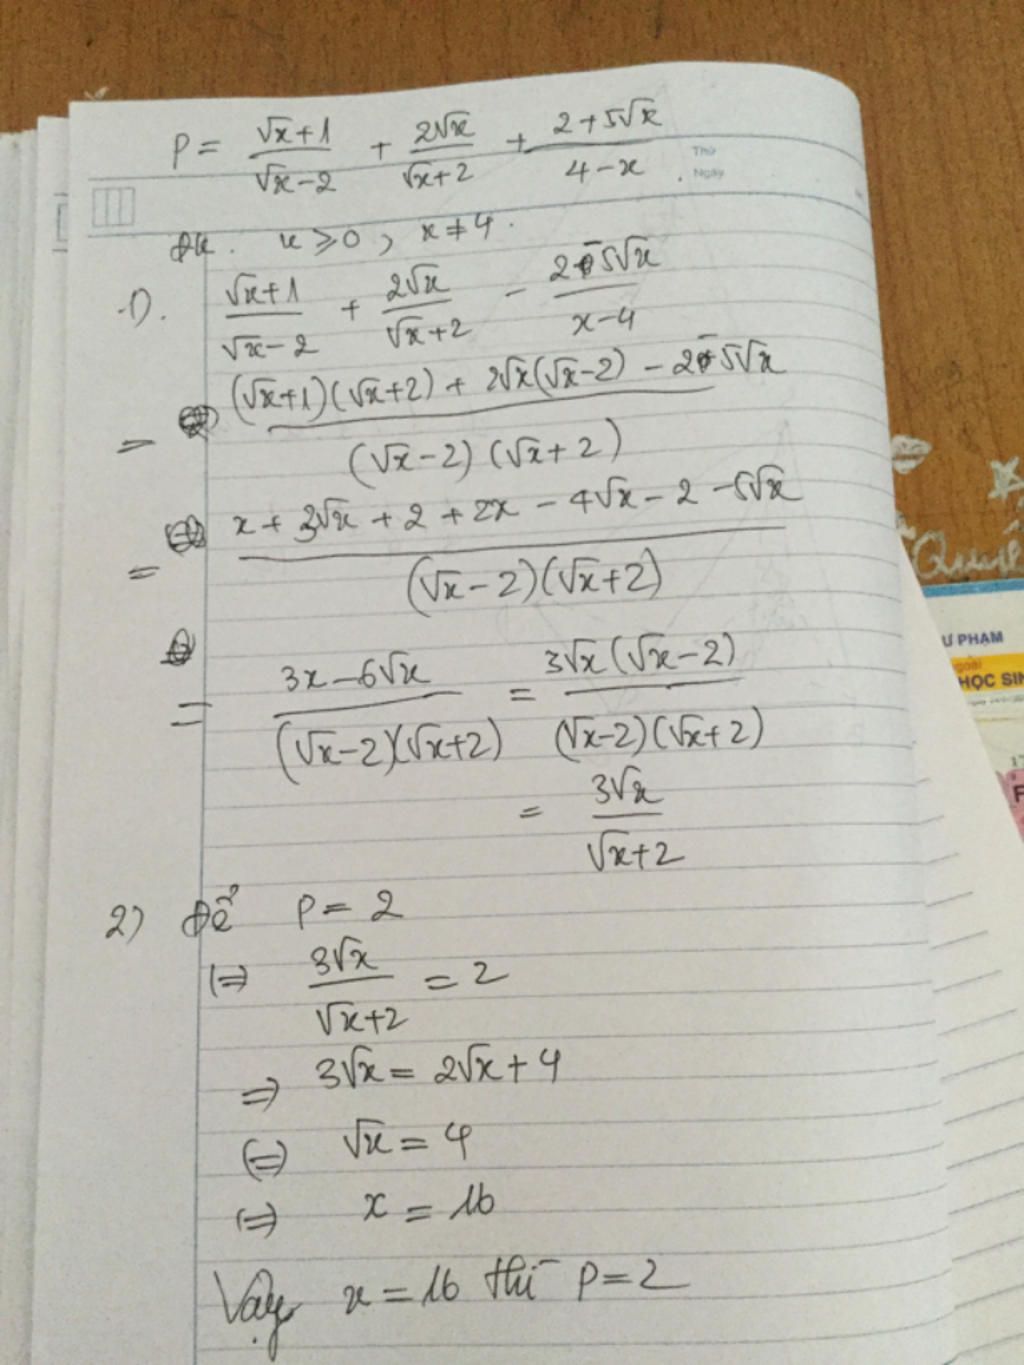 P = (√x+1)/(√x-2) + 2√x/(√x+2) + (2+5√x)/(4-x)
Thứ
Ngày
Đk. x ≥ 0, x ≠ 4.
1). (√x+1)/(√x-2) + 2√x/(√x+2) - (2-5√x)/(x-4)
= ((√x+1)(√x+2) + 2√x(√x-2) - 2-5√x)/((√x-2)(√x+2))
= (x + 3√x + 2 + 2x - 4√x - 2 - 5√x)/((√x-2)(√x+2))
= (3x-6√x)/((√x-2)(√x+2)) = (3√x(√x-2))/((√x-2)(√x+2))
= 3√x/(√x+2)
2) Để P = 2
(=) 3√x/(√x+2) = 2
=) 3√x = 2√x + 4
(=) √x = 4
(=) x = 16
Vậy x = 16 thì P = 2
Ư PHẠM
HỌC SIN